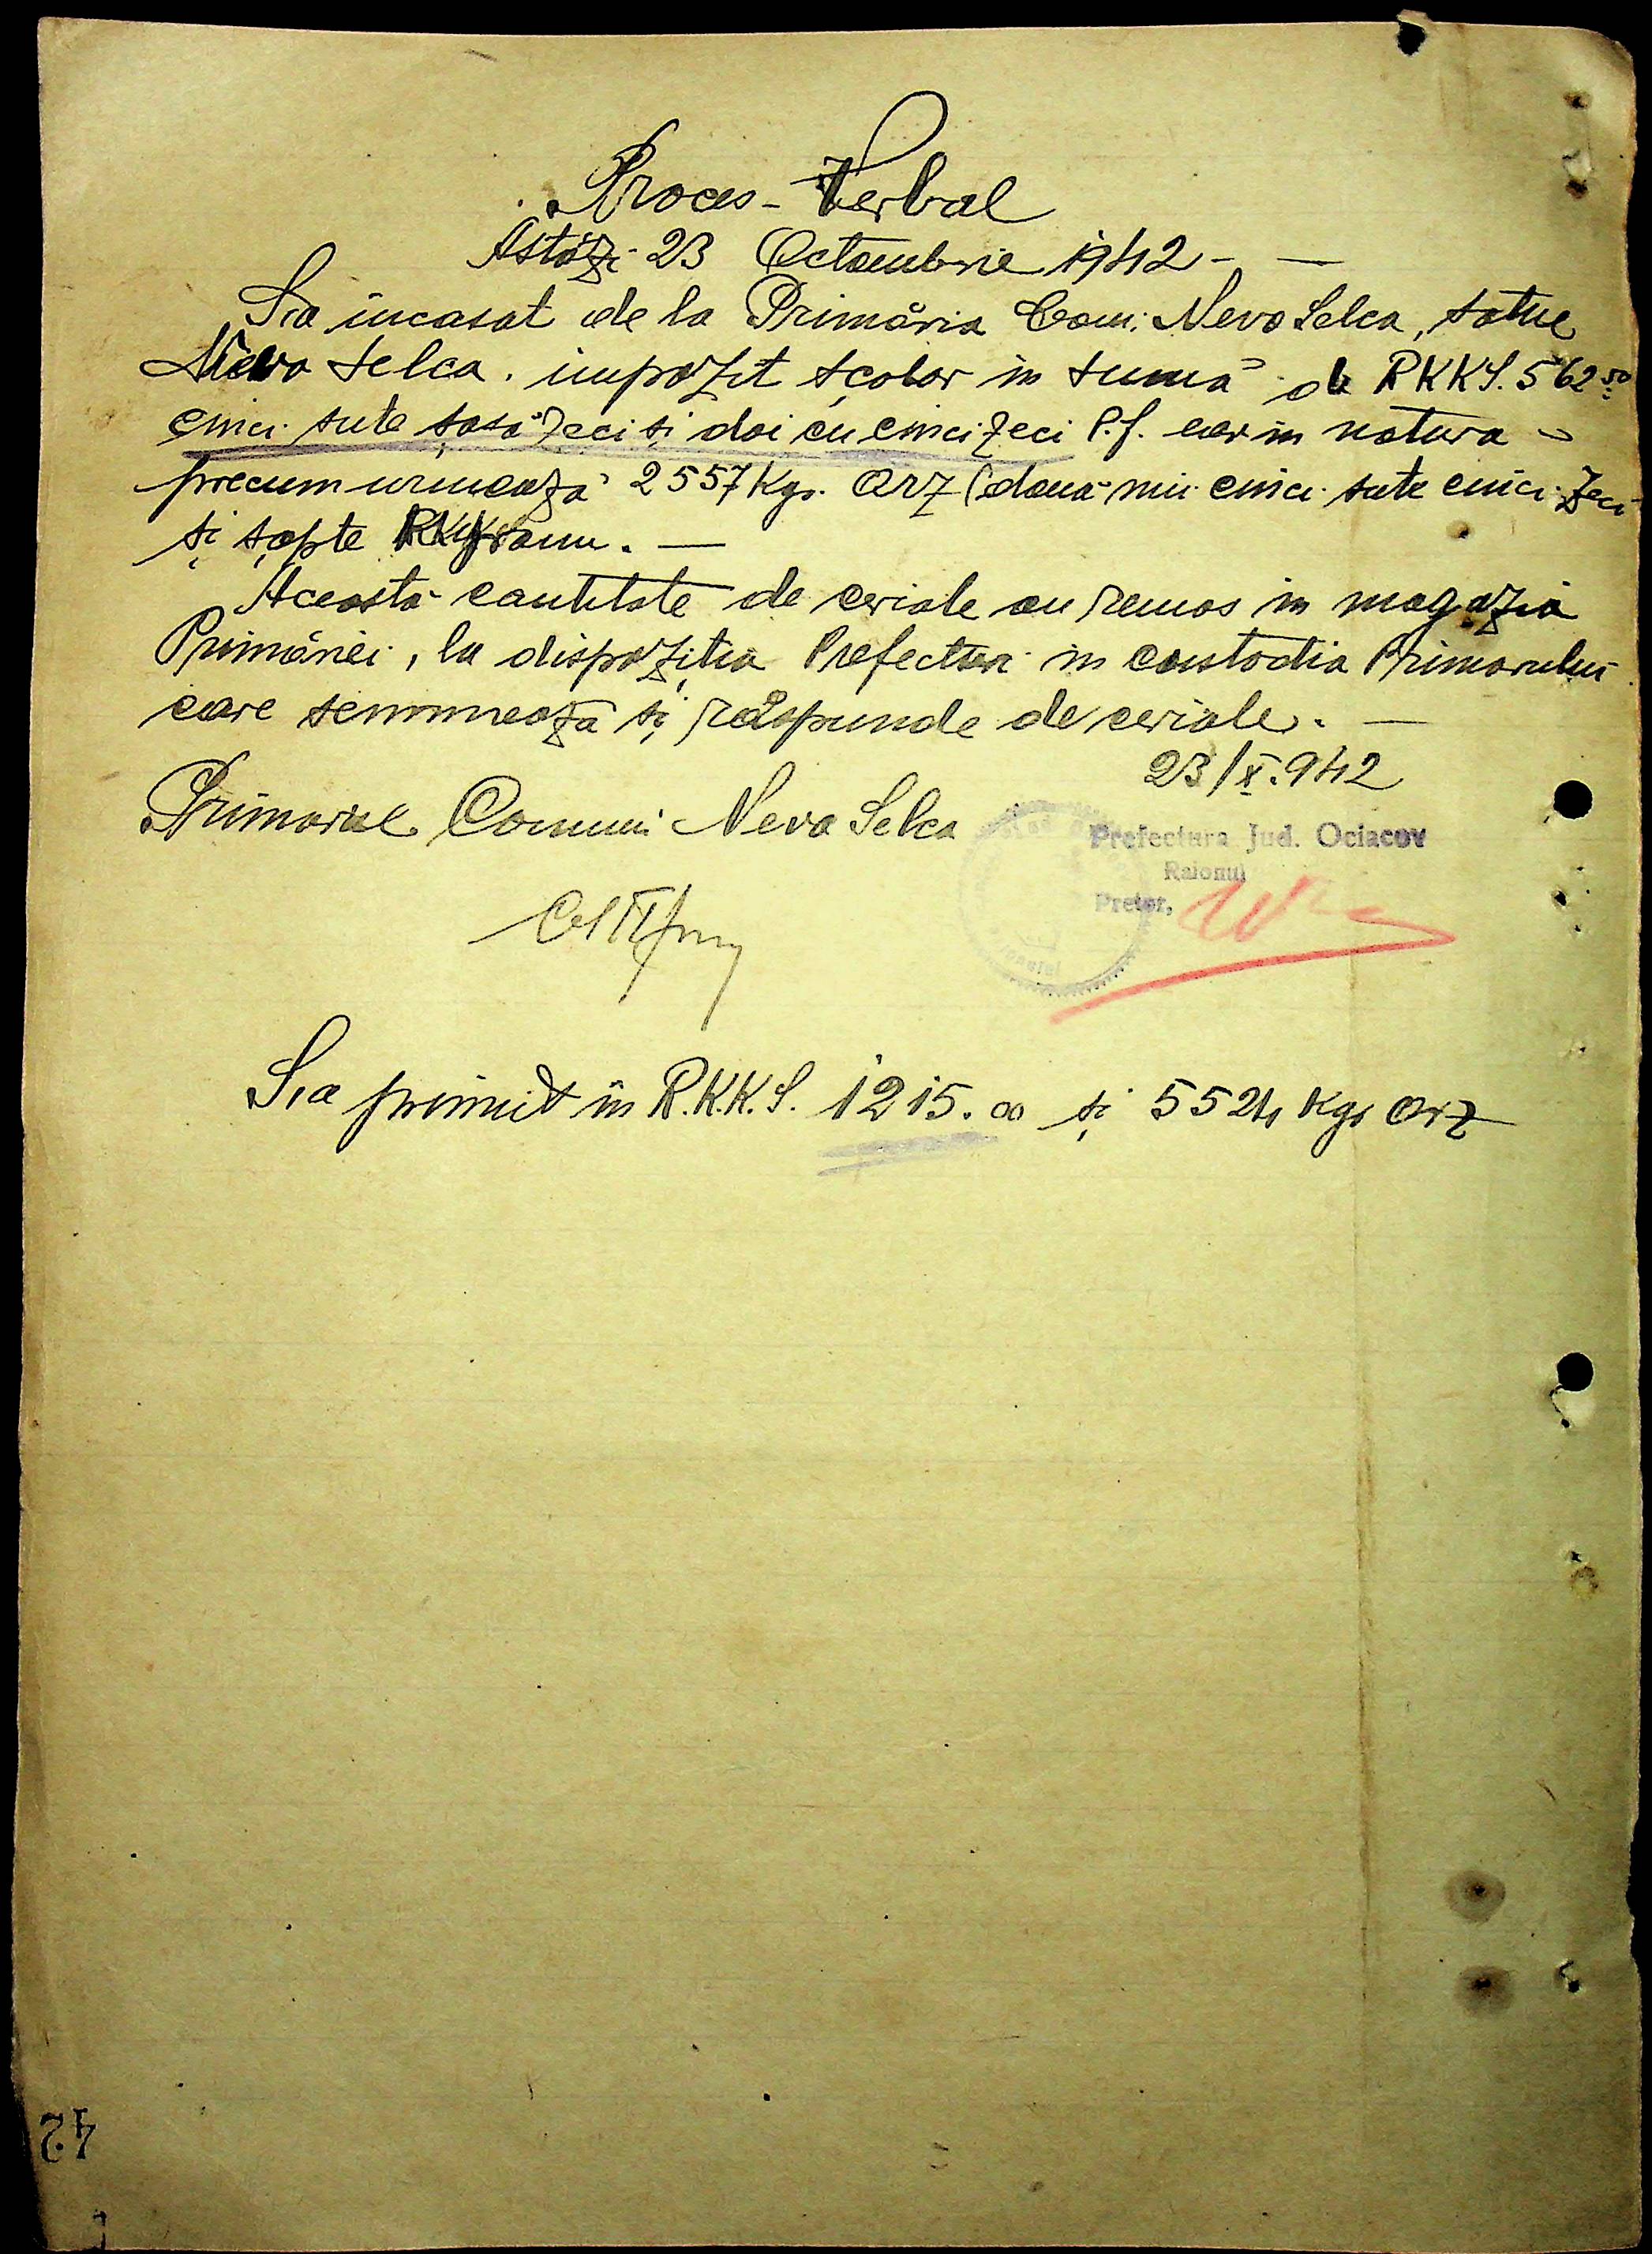 Proces-Verbal
Astăzi 23 Octombrie 1942 - —
S'a incasat de la Primăria Com. Nevo Selca, satul
Nevo Selca. impozit școlar in sumă de RKKS. 562.50
cinci sute șasă zeci și doi cu cinci zeci P.f. ear in natura -
precum urmează 2557 Kgr. Orz (două mii cinci sute cinci zeci
și șapte . —
Această cantitate de ceriale au remas in magazia
Primăriei, la dispoziția Prefecturi in custodia Primarului
care semnnează și răspunde de ceriale. —
23/X.942
Primarul Comuni Nevo Selca
Prefectura Jud. Ociacov
Raionul
Pretor,
S'a primit in R.K.K.S. 1215.00 și 5524 Kgr Orz
42